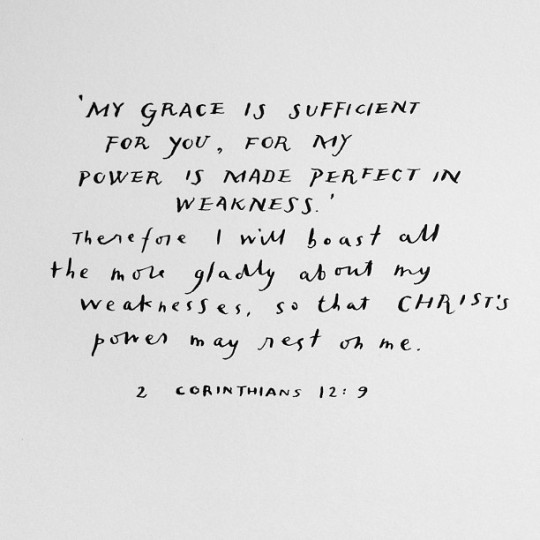 'MY GRACE IS SUFFICIENT
FOR YOU, FOR MY
POWER IS MADE PERFECT IN
WEAKNESS.'
Therefore I will boast all
the more gladly about my
weaknesses, so that CHRIST'S
power may rest on me.
2 CORINTHIANS 12:9